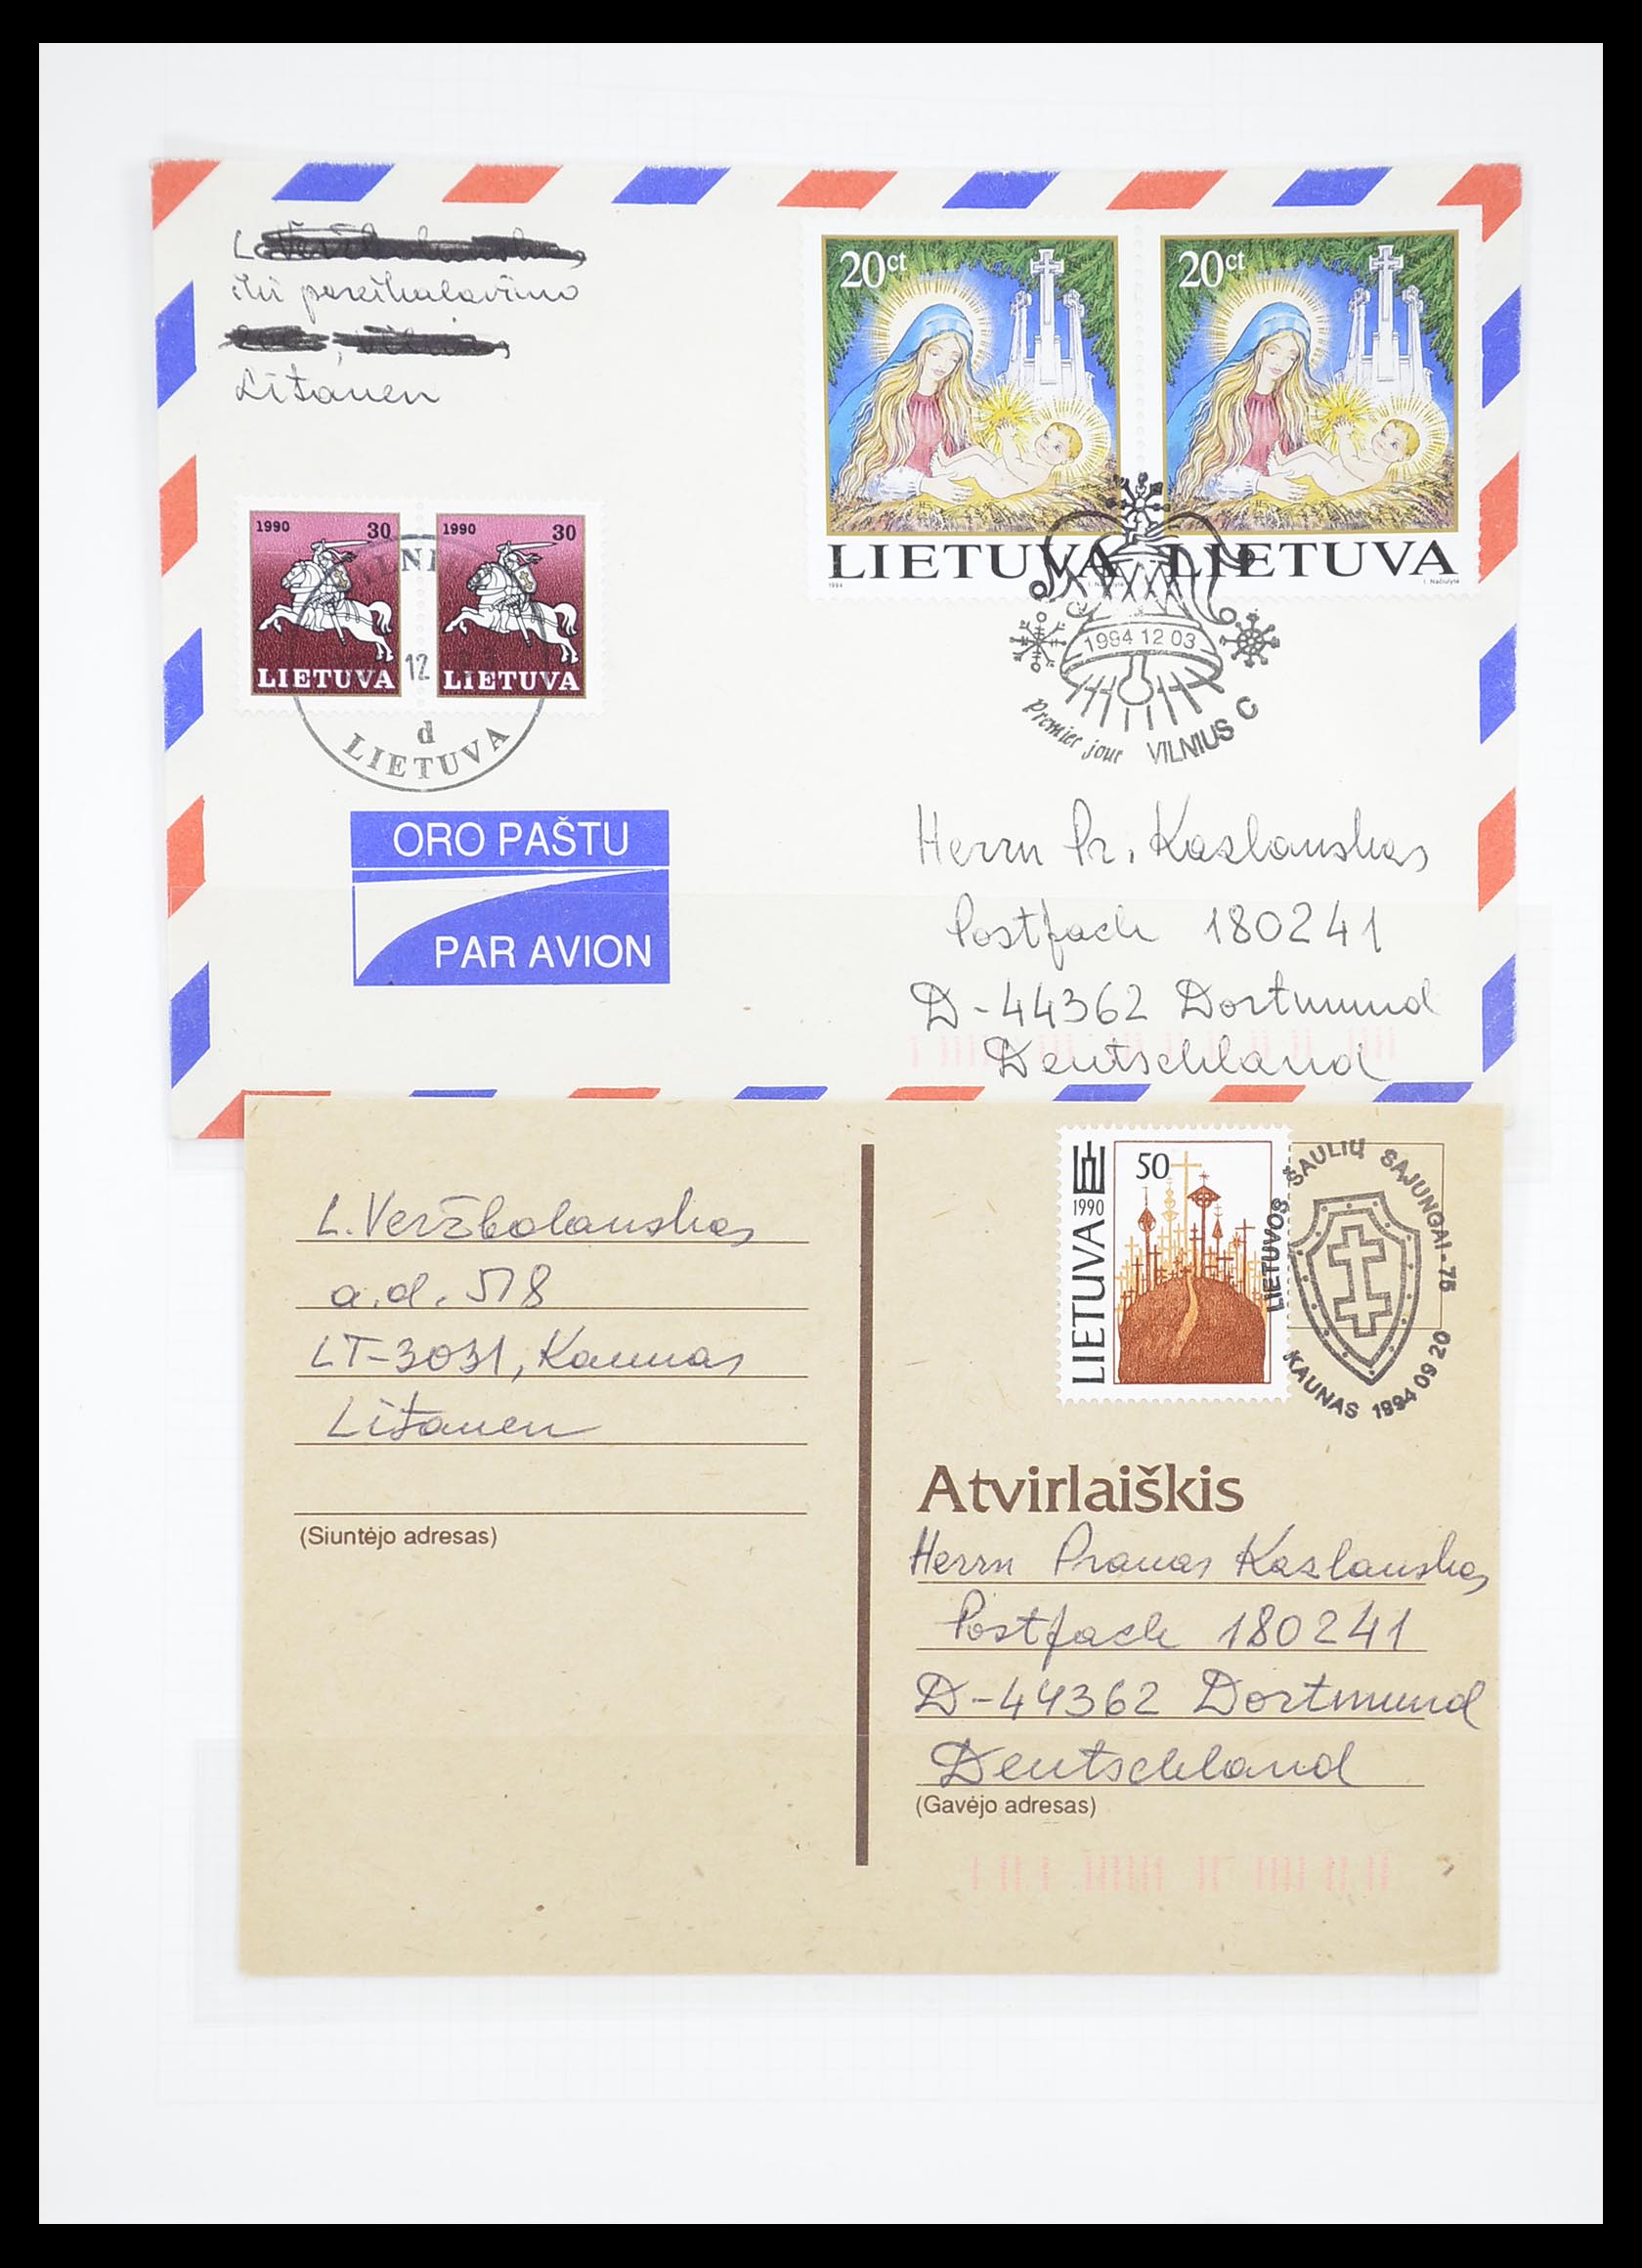 Litauen
20ct
20ct
LIETUVA
LIETUVA
1994
I. Načiulytė
1990 30
1990 30
LIETUVA
LIETUVA
12
d
LIETUVA
1994 12 03
Premier jour VILNIUS C
ORO PAŠTU
PAR AVION
Herrn Pr. Kazlauskas
Postfach 180241
D-44362 Dortmund
Deutschland
L. Veržbolauskas
a.d. 518
LT-3031, Kaunas
Litauen
(Siuntėjo adresas)
50
1990
LIETUVA
LIETUVOS ŠAULIŲ SĄJUNGAI-75
KAUNAS 1994 09 20
Atvirlaiškis
Herrn Pranas Kazlauskas
Postfach 180241
D-44362 Dortmund
Deutschland
(Gavėjo adresas)